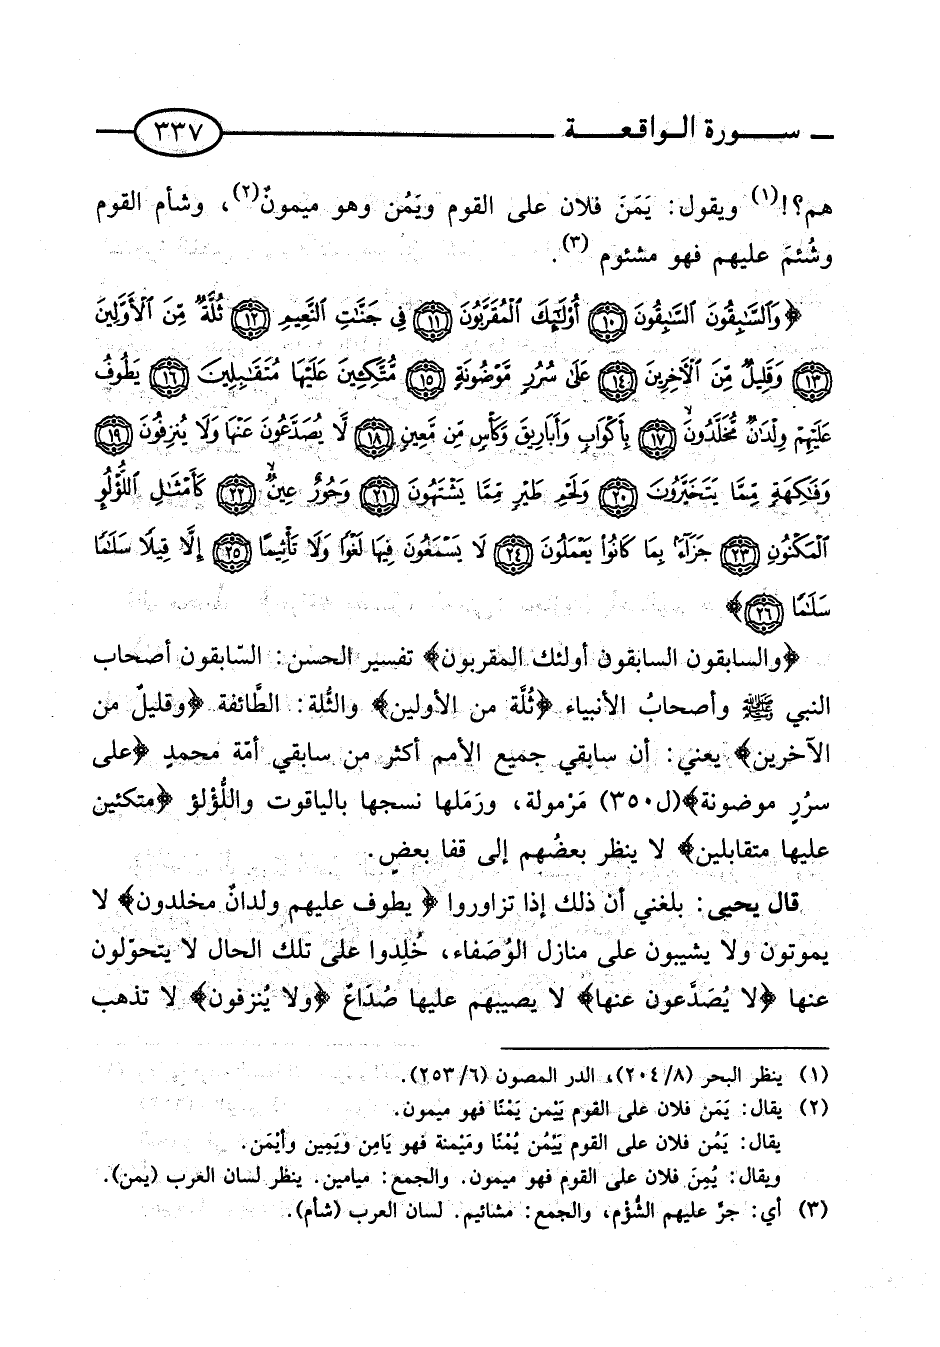 سورة الواقعة ٣٣٧
هم؟!(١) ويقول: يَمَنَ فلان على القوم ويَمُن وهو ميمونٌ(٢)، وشأم القوم
وشُئمَ عليهم فهو مشئوم (٣).
﴿وَٱلسَّٰبِقُونَ ٱلسَّٰبِقُونَ ١٠ أُوْلَٰٓئِكَ ٱلْمُقَرَّبُونَ ١١ فِى جَنَّٰتِ ٱلنَّعِيمِ ١٢ ثُلَّةٌ مِّنَ ٱلْأَوَّلِينَ
١٣ وَقَلِيلٌ مِّنَ ٱلْءَاخِرِينَ ١٤ عَلَىٰ سُرُرٍ مَّوْضُونَةٍ ١٥ مُّتَّكِـِٔينَ عَلَيْهَا مُتَقَٰبِلِينَ ١٦ يَطُوفُ
عَلَيْهِمْ وِلْدَٰنٌ مُّخَلَّدُونَ ١٧ بِأَكْوَابٍ وَأَبَارِيقَ وَكَأْسٍ مِّن مَّعِينٍ ١٨ لَّا يُصَدَّعُونَ عَنْهَا وَلَا يُنزِفُونَ ١٩
وَفَٰكِهَةٍ مِّمَّا يَتَخَيَّرُونَ ٢٠ وَلَحْمِ طَيْرٍ مِّمَّا يَشْتَهُونَ ٢١ وَحُورٌ عِينٌ ٢٢ كَأَمْثَٰلِ ٱللُّؤْلُوِٕ
ٱلْمَكْنُونِ ٢٣ جَزَآءًۢ بِمَا كَانُوا۟ يَعْمَلُونَ ٢٤ لَا يَسْمَعُونَ فِيهَا لَغْوًا وَلَا تَأْثِيمًا ٢٥ إِلَّا قِيلًا سَلَٰمًا
سَلَٰمًا ٢٦﴾
﴿والسابقون السابقون أولئك المقربون﴾ تفسير الحسن: السّابقون أصحاب
النبي ﷺ وأصحابُ الأنبياء ﴿ثُلَّة من الأولين﴾ والثُلة: الطَّائفة ﴿وقليلٌ من
الآخرين﴾ يعني: أن سابقي جميع الأمم أكثر من سابقي أمّة محمدٍ ﴿على
سرُرٍ موضونة﴾(ل٣٥٠) مَرْمولة، ورَمَلها نسجها بالياقوت واللُّؤلؤ ﴿متكئين
عليها متقابلين﴾ لا ينظر بعضُهم إلى قفا بعضٍ.
قال يحيى: بلغني أن ذلك إذا تزاوروا ﴿ يطوف عليهم ولدانٌ مخلدون﴾ لا
يموتون ولا يشيبون على منازل الوُصَفاء، خُلِدوا على تلك الحال لا يتحوّلون
عنها ﴿لا يُصَدَّعون عنها﴾ لا يصيبهم عليها صُدَاعٌ ﴿ولا يُنزفون﴾ لا تذهب
(١) ينظر البحر (٢٠٤/٨)، الدر المصون (٢٥٣/٦).
(٢) يقال: يَمَن فلان على القوم يَيْمن يَمْنًا فهو ميمون.
يقال: يَمُن فلان على القوم يَيْمُن يُمْنًا ومَيْمنة فهو يَامِن ويَمِين وأيْمَن.
ويقال: يُمِنَ فلان على القوم فهو ميمون. والجمع: ميامين. ينظر لسان العرب (يمن).
(٣) أي: جرّ عليهم الشُّؤْم، والجمع: مشائيم. لسان العرب (شأم).